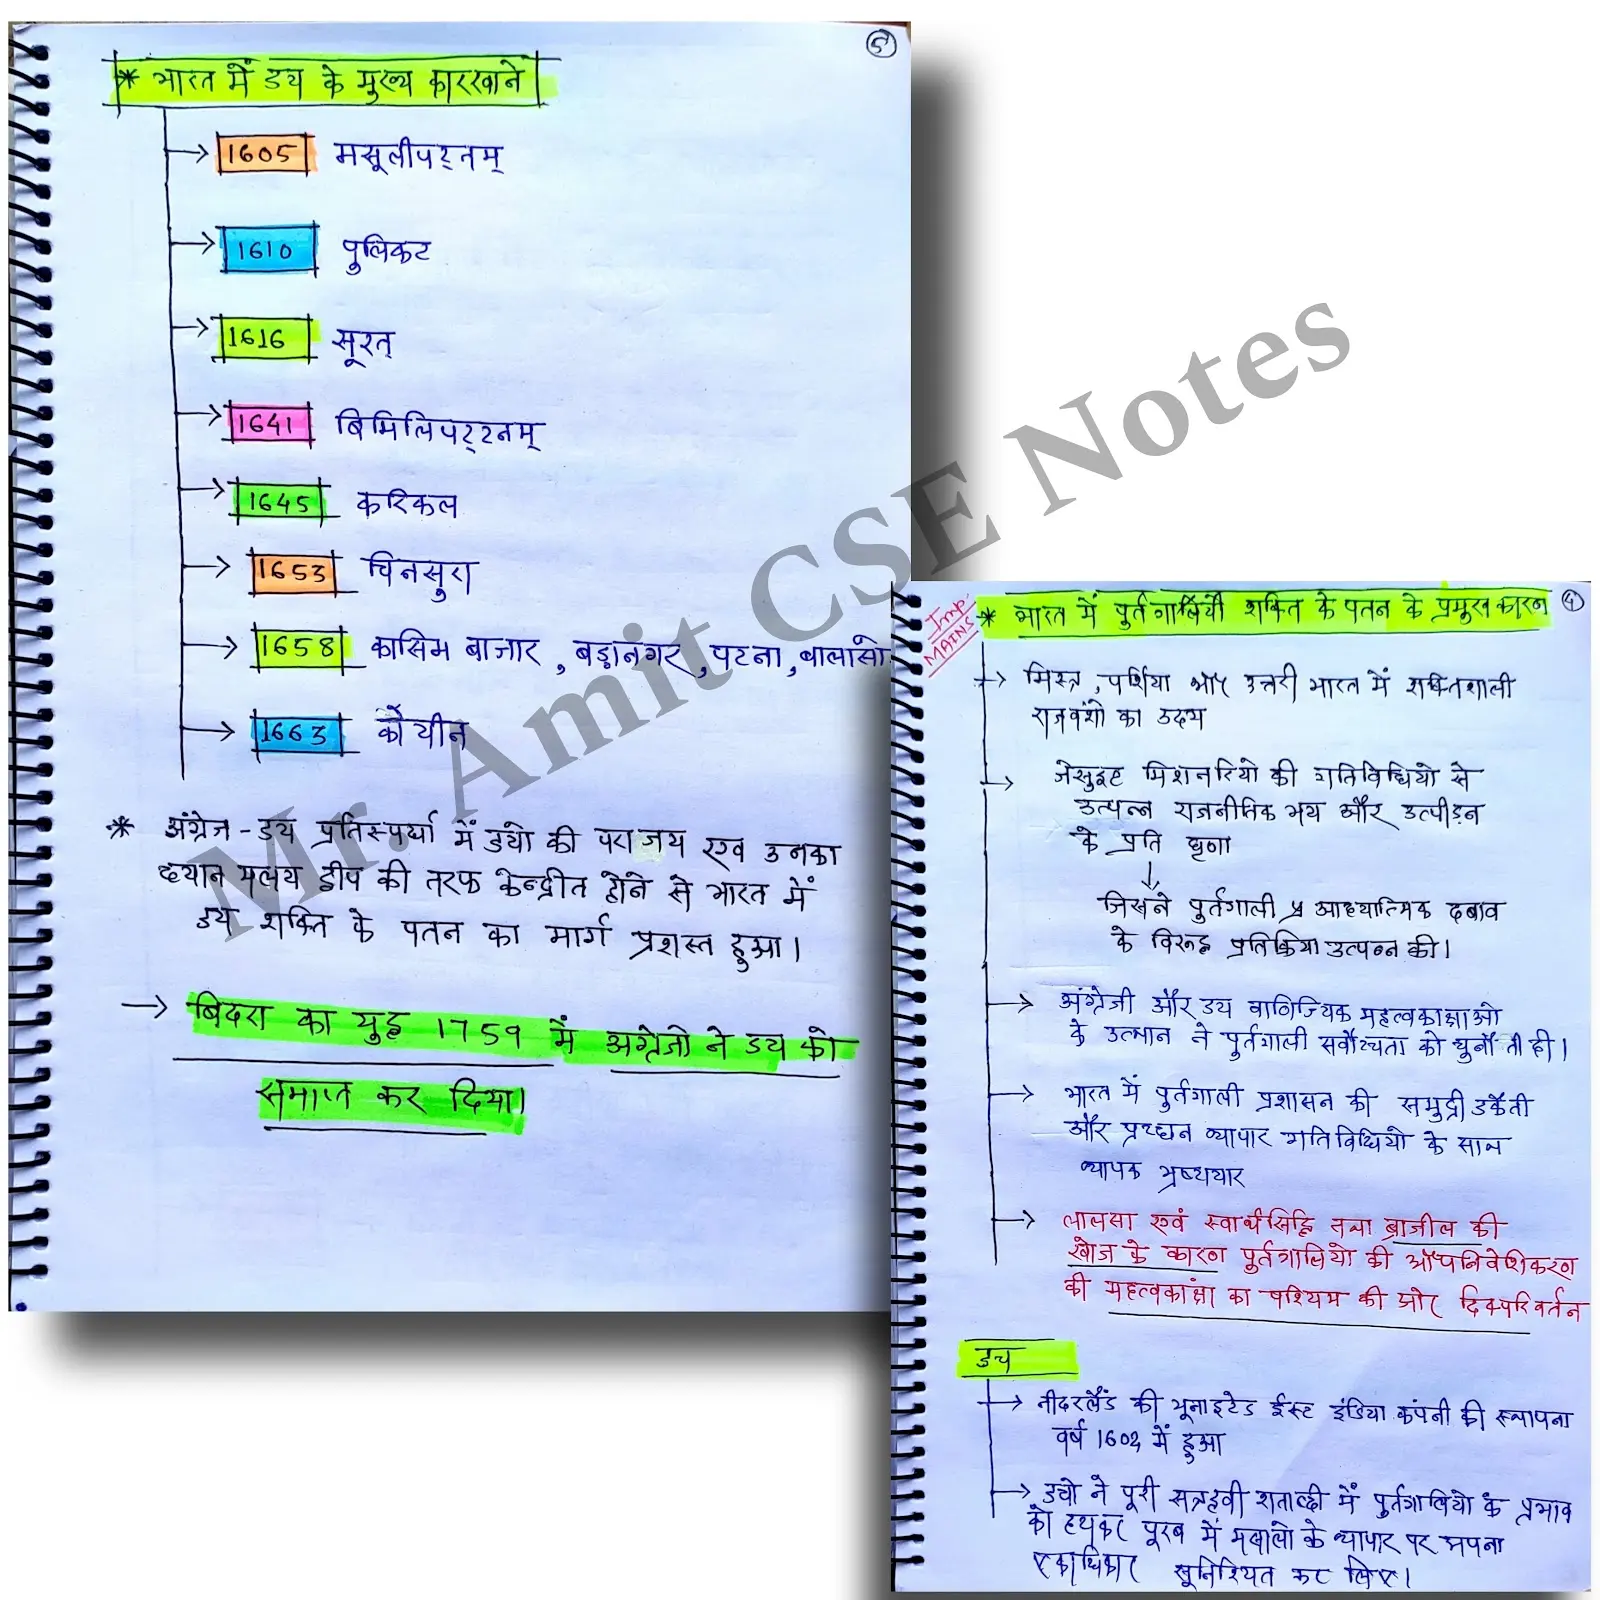 5
* भारत में डच के मुख्य कारखाने
1605 मसूलीपट्नम्
1610 पुलिकट
1616 सूरत्
1641 बिमिलिपट्टनम्
1645 करिकल
1653 चिनसुरा
1658 कासिम बाजार, बड़ानगर, पटना, बालासो
1663 कोचीन
* अंग्रेज - डच प्रतिस्पर्धा में डचो की पराजय एवं उनका
ध्यान मलय द्वीप की तरफ केन्द्रीत होने से भारत में
डच शक्ति के पतन का मार्ग प्रशस्त हुआ।
→ बिदरा का युद्ध 1759 में अंग्रेजो ने डच को
समाप्त कर दिया।
Mr. Amit CSE Notes
4
Imp'
MAINS
* भारत में पुर्तगालियो शक्ति के पतन के प्रमुख कारन
→ मिस्त्र, पर्शिया और उत्तरी भारत में शक्तिशाली
राजवंशो का उदय
→ जेसुइट मिशनरियो की गतिविधियो से
उत्पन्न राजनीतिक भय और उत्पीड़न
के प्रति घृणा
↓
जिसने पुर्तगाली आध्यात्मिक दबाव
के विरुद्ध प्रतिक्रिया उत्पन्न की।
→ अंग्रेजी और डच वाणिज्यिक महत्वकांक्षाओ
के उत्थान ने पुर्तगाली सर्वोच्चता को चुनौती दी।
→ भारत में पुर्तगाली प्रशासन की समुद्री डकैती
और प्रच्छन व्यापार गतिविधियो के साथ
व्यापक भ्रष्टाचार
→ लालसा एवं स्वार्थसिद्धि तथा ब्राजील की
खोज के कारण पुर्तगालियो की औपनिवेशिकरण
की महत्वकांक्षा का पश्चिम की ओर दिक्परिवर्तन
डच
→ नीदरलैंड की यूनाइटेड ईस्ट इंडिया कंपनी की स्थापना
वर्ष 1602 में हुआ
→ डचो ने पूरी सत्रहवी शताब्दी में पुर्तगालियो के प्रभाव
को हटाकर पूरब में मसालो के व्यापार पर अपना
एकाधिकार सुनिश्चित कर लिए।